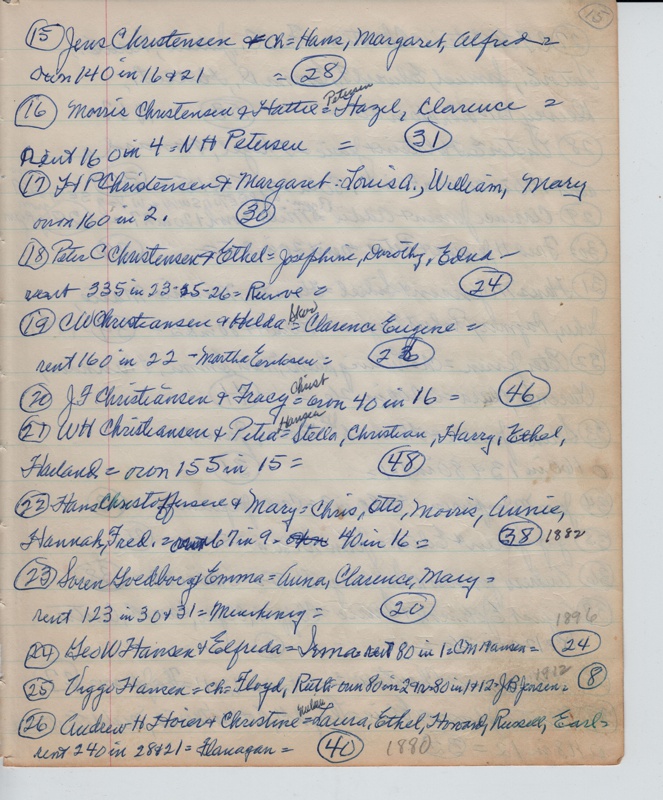 15
(15) Jens Christensen & Ch = Hans, Margaret, Alfred =
own 140 in 16 & 21 = (28)
Petersen
(16) Morris Christensen & Hattie = Hazel, Clarence =
Rent 160 in 4 = N H Petersen = (31)
(17) H P Christensen & Margaret = Louis A., William, Mary
own 160 in 2. (30)
(18) Peter C Christensen & Ethel = Josephine, Dorothy, Edna -
rent 335 in 23-25-26 = = (24)
(19) C W Christiansen & Hilda = Clarence Eugene =
rent 160 in 22 - Martha Eriksen = (26)
Christ
(20) J F Christiansen & Tracy = own 40 in 16 = (46)
Hansen
(21) W H Christiansen & Petra = Stella, Christian, Harry, Ethel,
Harland = own 155 in 15 = (48)
(22) Hans Christoffersen & Mary = Chris, Otto, Morris, Annie,
Hannah, Fred. = own 67 in 9 - 40 in 16 = (38) 1882
(23) Soren Goedborg & Emma = Anna, Clarence, Mary =
rent 123 in 30 & 31 = = (20)
1896
(24) Geo W Hansen & Elfreda = Irma = rent 80 in 1 = C M Hansen = (24)
1912
(25) Viggo Hansen = Ch = Floyd, Ruth = own 80 in 2 = r 80 in 1 & 12 = J B Jensen = (8)
(26) Andrew H Hoier & Christine = Laura, Ethel, Howard, Russell, Earl =
rent 240 in 28 & 21 = Flanagan = (40) 1880